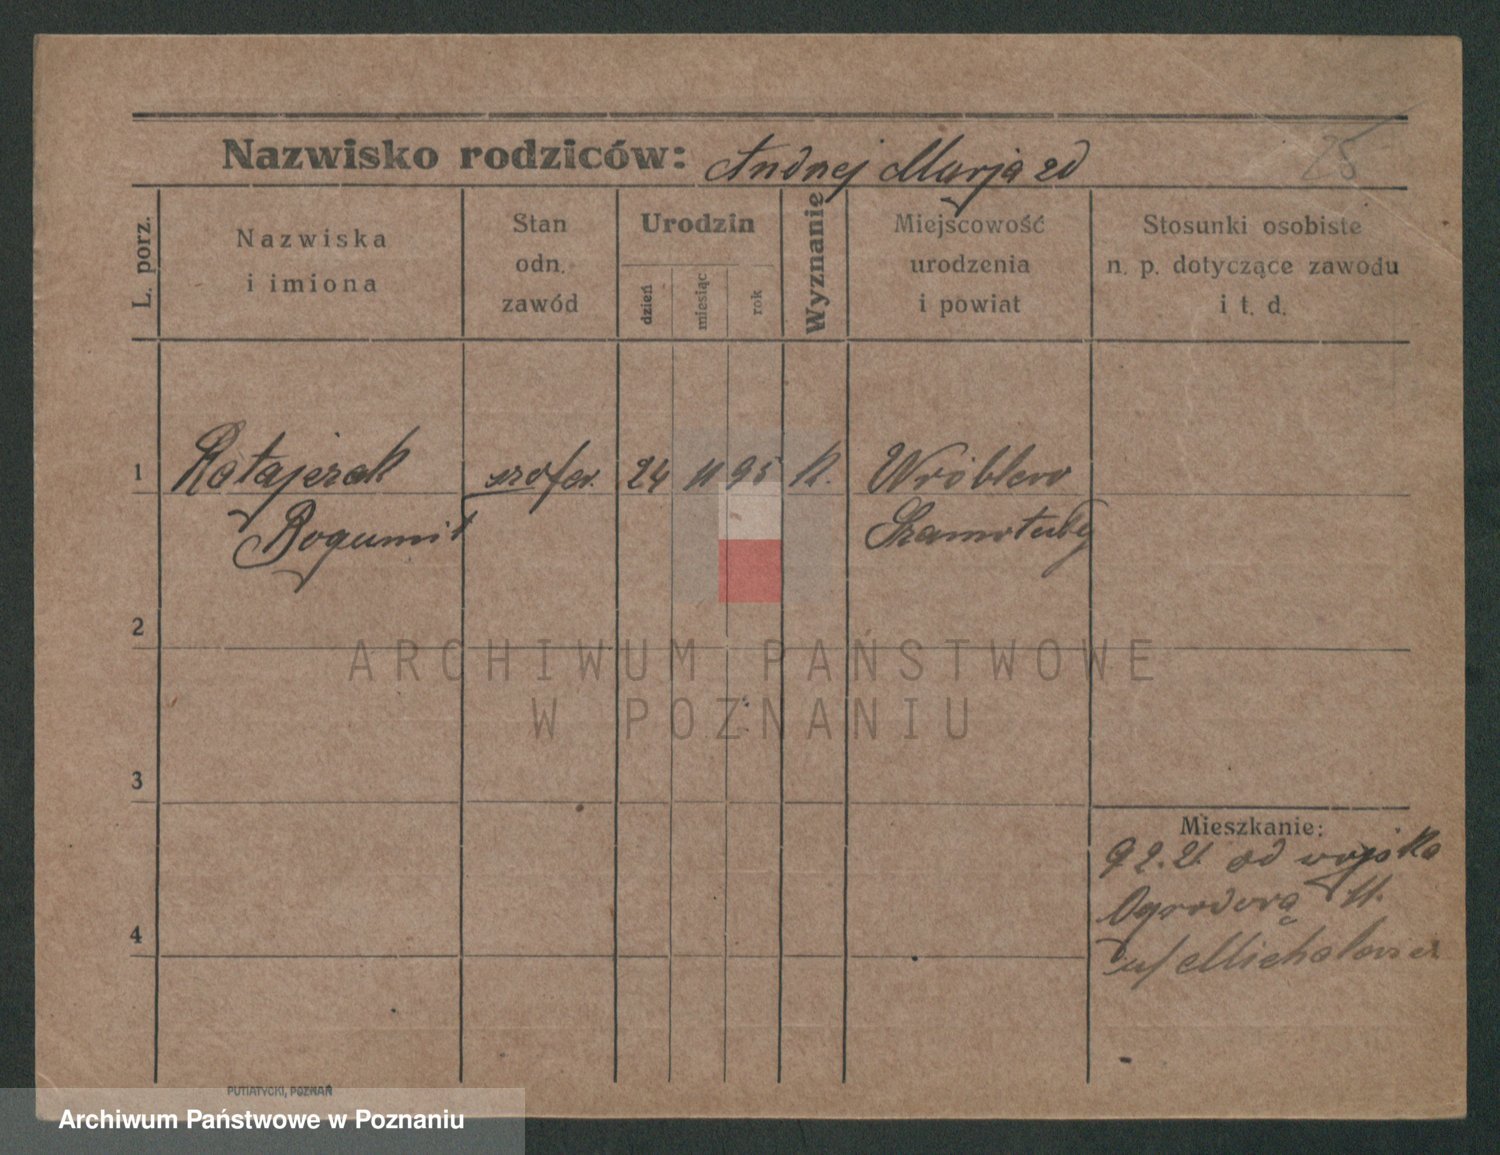 Nazwisko rodziców: Andrzej Marja zd
25
L. porz.
Nazwiska
i imiona
Stan
odn.
zawód
Urodzin
dzień
miesiąc
rok
Wyznanie
Miejscowość
urodzenia
i powiat
Stosunki osobiste
n. p. dotyczące zawodu
i t. d.
1
Ratajczak
Bogumił
szofer.
24 11 95
K.
Wróblewo
Szamotuły
2
3
4
Mieszkanie:
9 2. 21. od wojska
Ogrodową 11.
u/ Michalowicz
ARCHIWUM PAŃSTWOWE
W POZNANIU
PUTIATYCKI, POZNAŃ
Archiwum Państwowe w Poznaniu